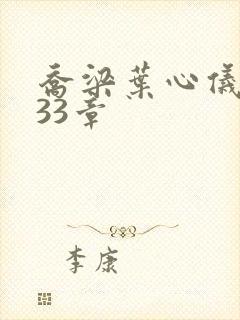 乔梁葉心儀
33章
李康